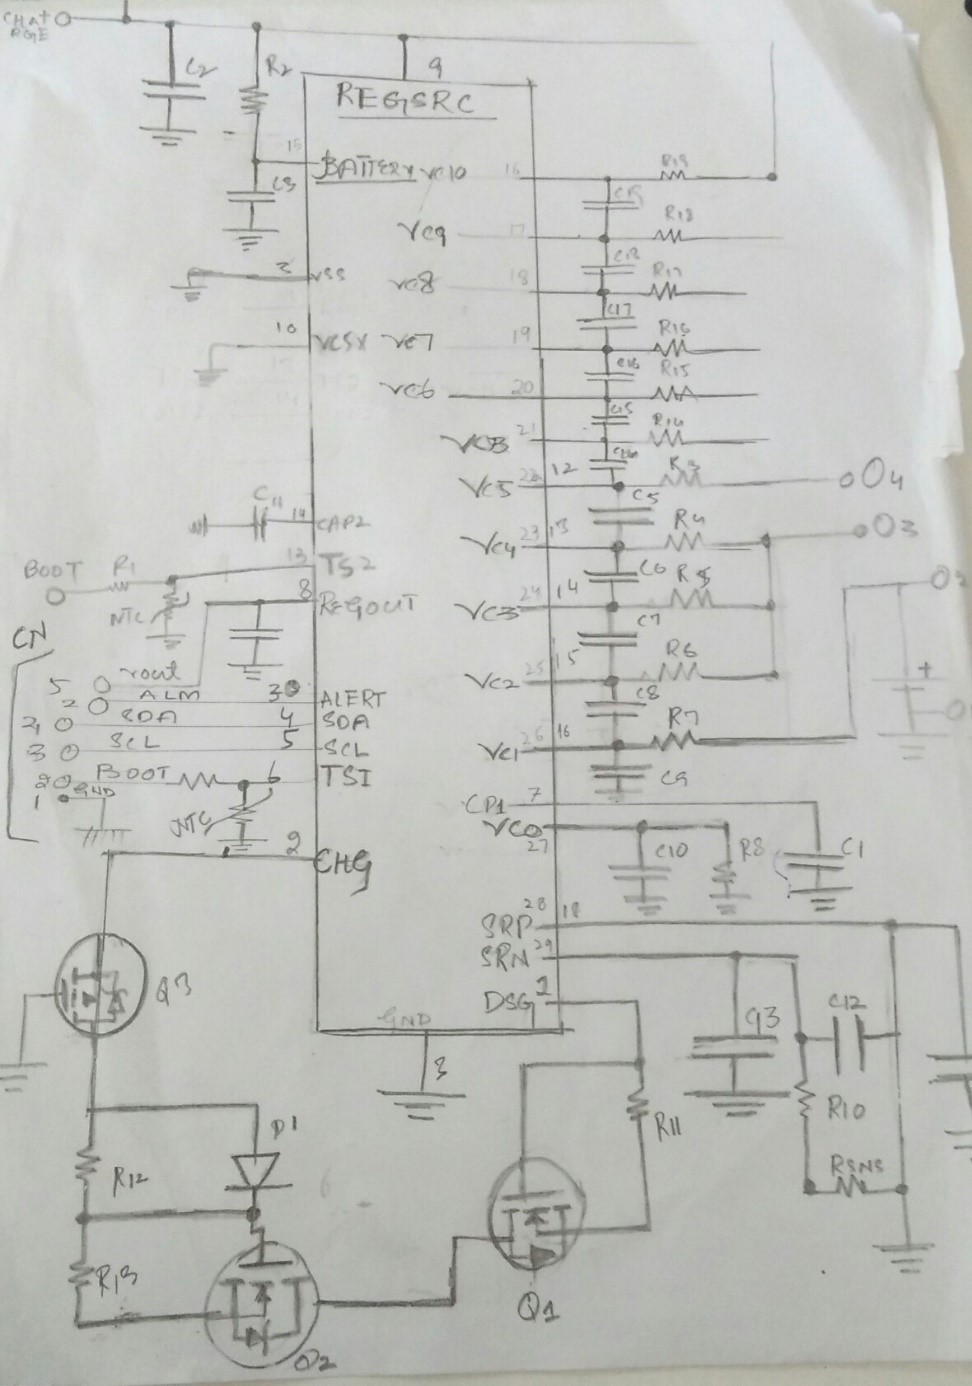 CHAT+
RGE
9
C2
R2
REGSRC
15
BATTERY VC10 16 R19
C3
C19
VC9 17 R18
C18
2 VSS
VC8 18 R17
C17
10 VC5X VC7 19 R16
C16
VC6 20 R15
C15
VCB 21 R14
VC5 22 12 R3 O4
C5
C11 14 CAP2
R4 O3
VC4 23 13
C6
BOOT R1 13 TS2
8 REGOUT
NTC
R5
VC3 24 14
C7
CN
15 R6
VC2 25
C8
5 rout
2 ALM 30 ALERT
4 SDA 4 SDA
3 SCL 5 SCL
+
R7
VC1 26 16
C9
20 BOOT 6 TSI
1 GND
NTC
CP1 7
VC0
27
C10 R8 C1
2 CHG
28 18
SRP
SRN 29
DSG 1
Q3
GND
3
C13 C12
R10
R11
D1
R12
RSNS
R13
Q1
Q2